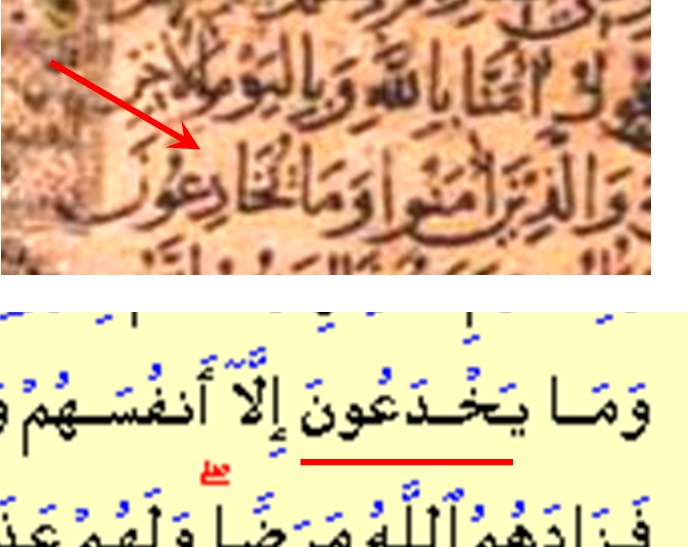 يقول آمنا بالله وباليوم الآخر
والذين آمنوا وما يخادعون
وَمَا يَخْدَعُونَ إِلَّآ أَنفُسَهُمْ
فَزَادَهُمُ ٱللَّهُ مَرَضًا ۖ وَلَهُمْ